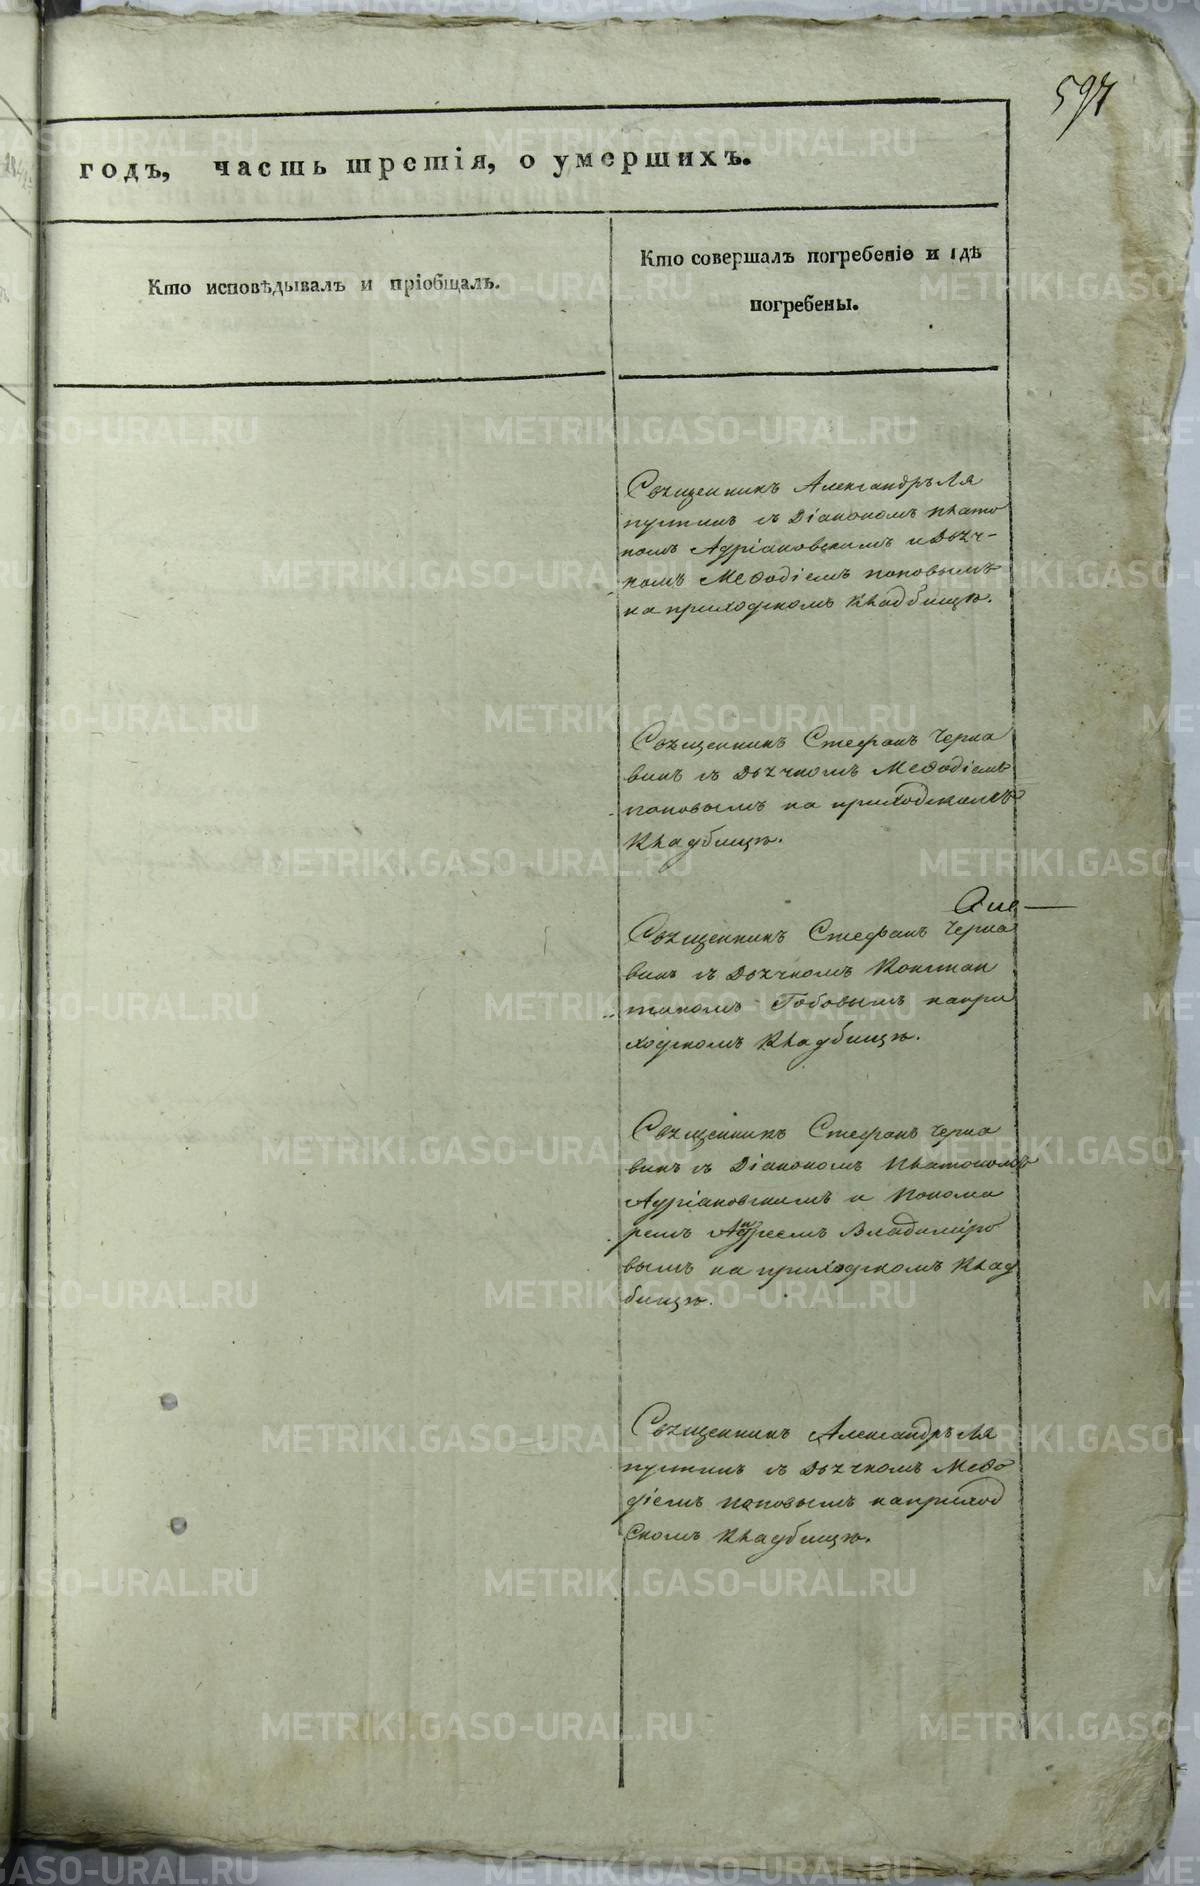 597
годъ, часть третія, о умершихъ.
Кто исповѣдывалъ и пріобщалъ.
Кто совершалъ погребеніе и гдѣ
погребены.
Священникъ Александръ Ля
пустинъ съ Діакономъ Плато
номъ Адріановскимъ и Дьяч-
комъ Меѳодіемъ Поповымъ
на приходскомъ Кладбищѣ.
Священникъ Стефанъ Черна
винъ съ Дьячкомъ Меѳодіемъ
Поповымъ на приходскомъ
Кладбищѣ.
Священникъ Стефанъ Черна
винъ съ Дьячкомъ Констан
тиномъ Гобовымъ на при
ходскомъ Кладбищѣ.
Священникъ Стефанъ Черна
винъ съ Діакономъ Платономъ
Адріановскимъ и Понома
ремъ Андреемъ Владиміро
вымъ на приходскомъ Клад
бищѣ.
Священникъ Александръ Ля
пустинъ съ Дьячкомъ Меѳо
діемъ Поповымъ на приход
скомъ Кладбищѣ.
METRIKI.GASO-URAL.RU